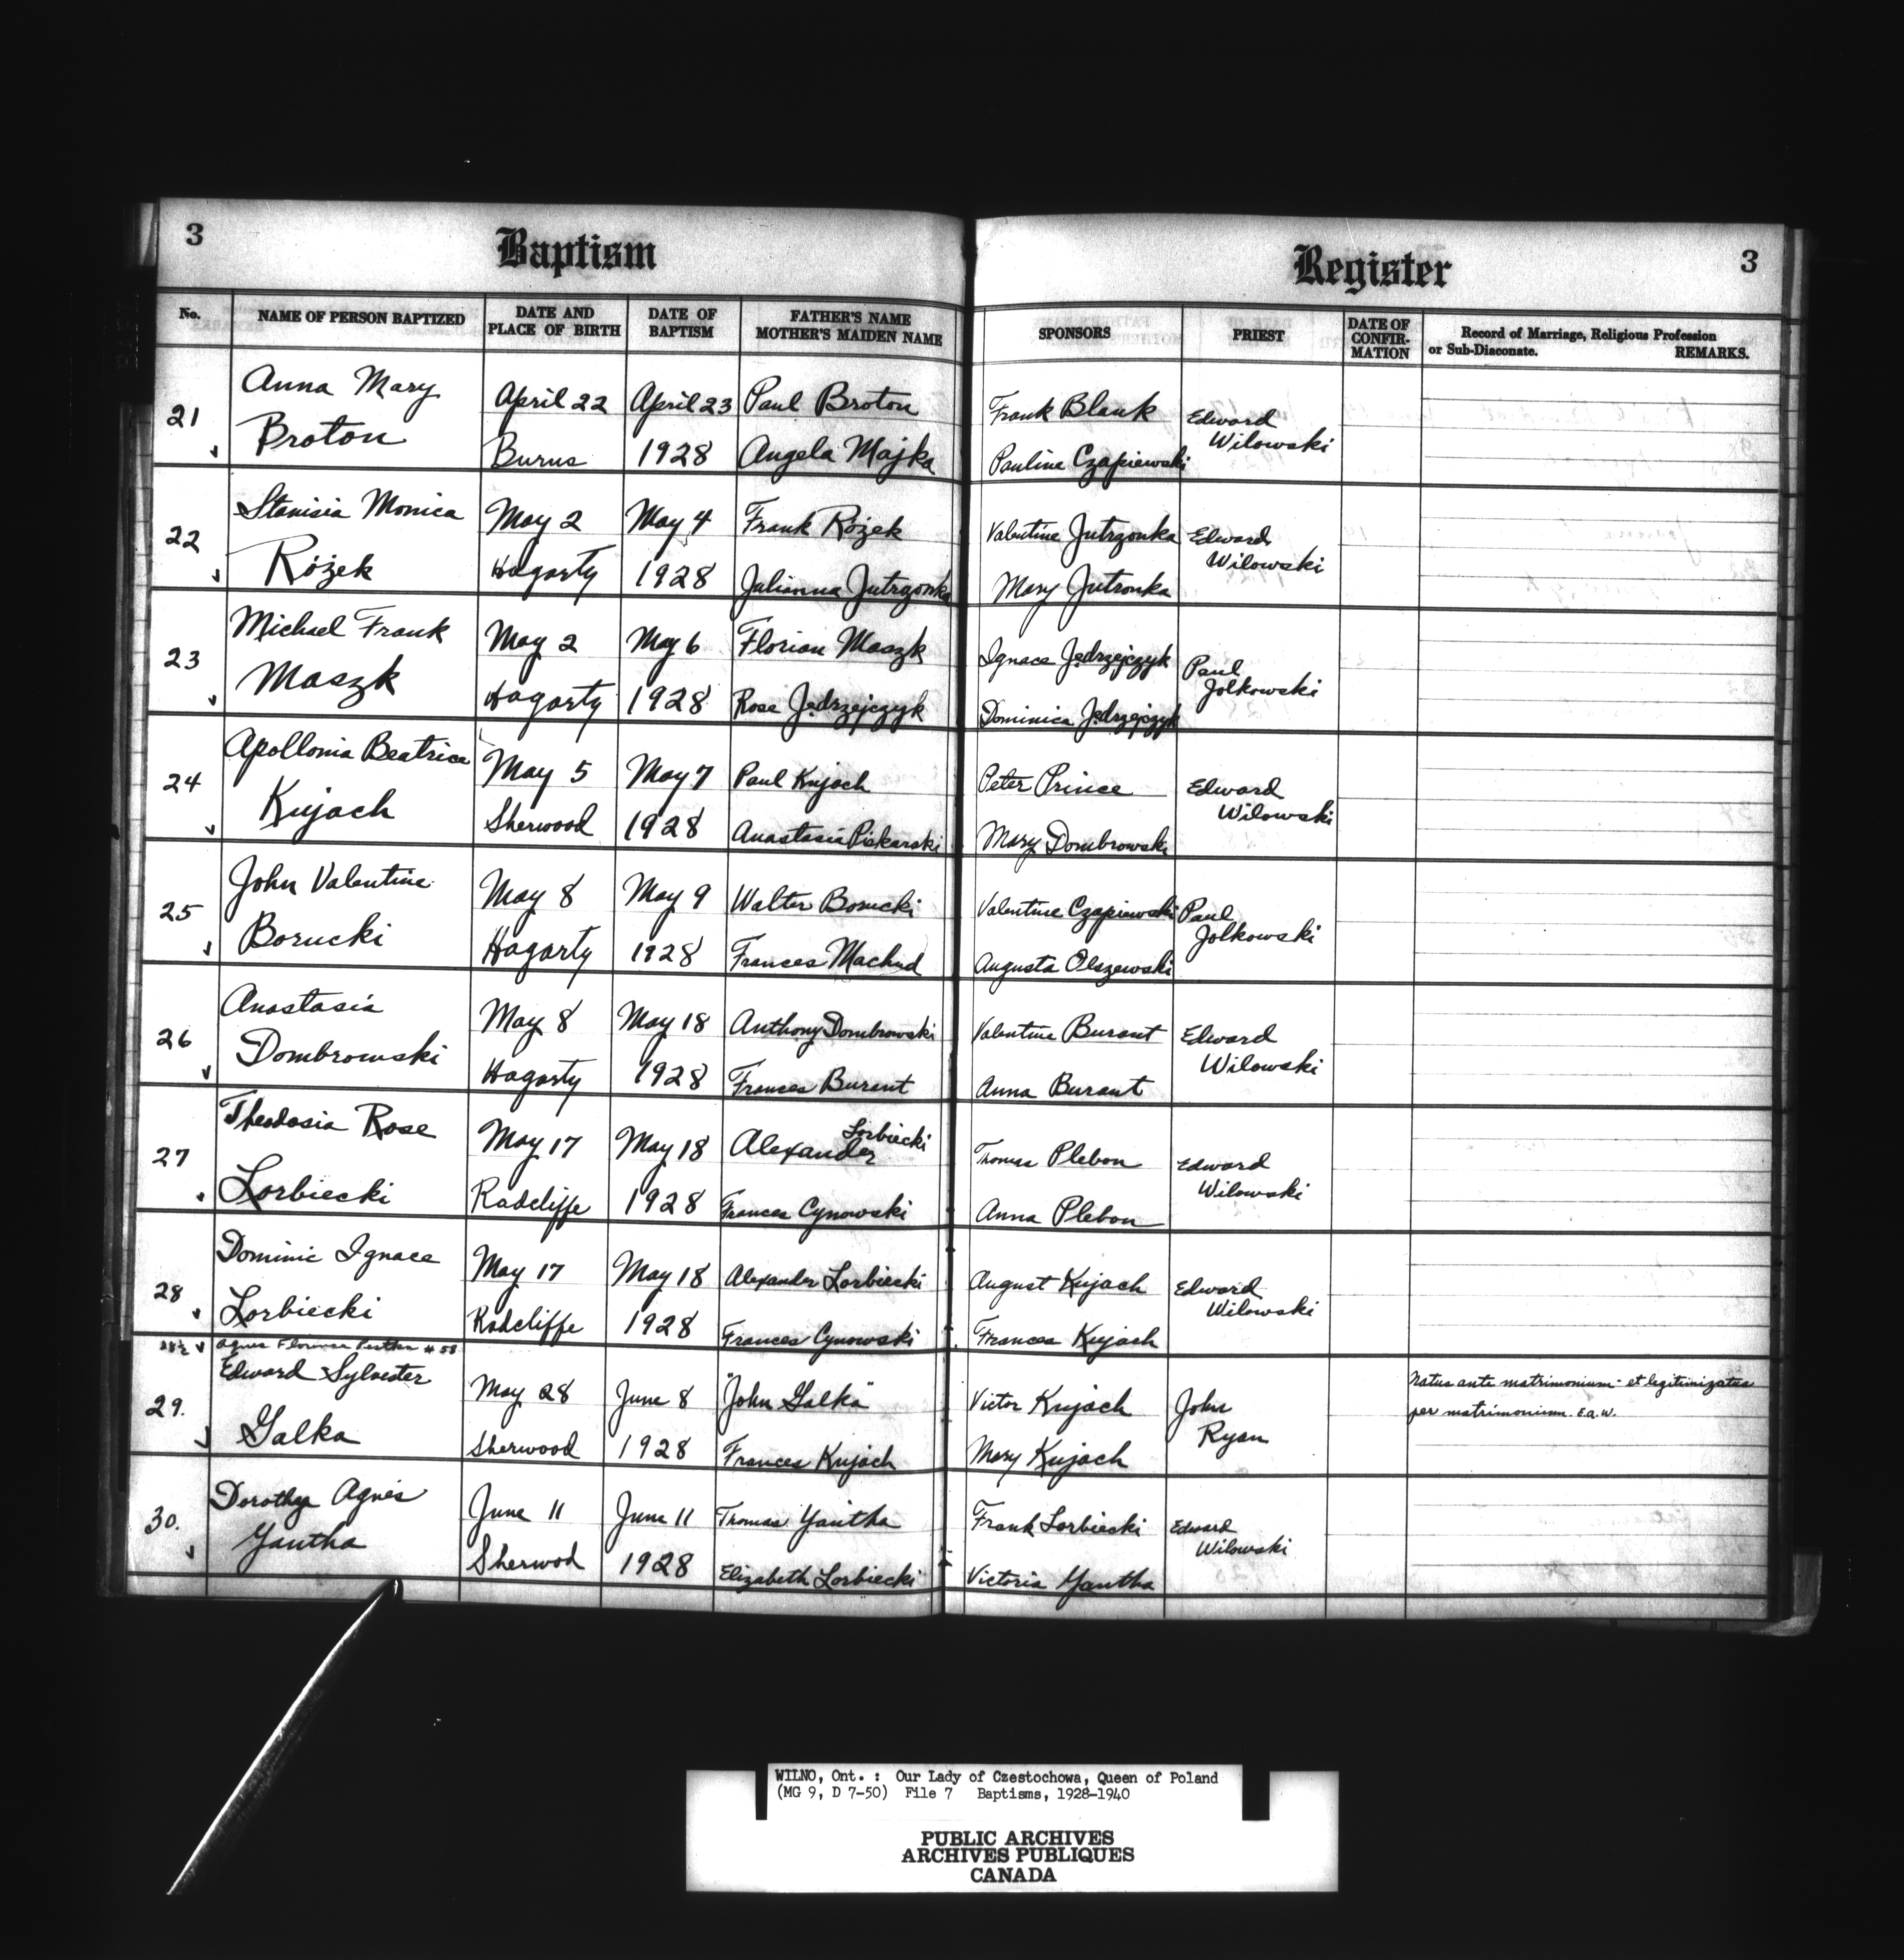 3
Baptism
Register
3
No.
NAME OF PERSON BAPTIZED
DATE AND
PLACE OF BIRTH
DATE OF
BAPTISM
FATHER'S NAME
MOTHER'S MAIDEN NAME
SPONSORS
PRIEST
DATE OF
CONFIR-
MATION
Record of Marriage, Religious Profession
or Sub-Diaconate. REMARKS.
21
Anna Mary
Broton
April 22
Burns
April 23
1928
Paul Broton
Angela Majka
Frank Blank
Pauline Czapiewski
Edward
Wilowski
22
Stanisia Monica
Rózek
May 2
Hagarty
May 4
1928
Frank Rózek
Julianna Jutrzonka
Valentine Jutrzonka
Mary Jutronka
Edward
Wilowski
23
Michael Frank
Maszk
May 2
Hagarty
May 6
1928
Florian Maszk
Rose Jedrzejczyk
Ignace Jedrzejczyk
Dominica Jedrzejczyk
Paul
Jolkowski
24
Apollonia Beatrice
Kujach
May 5
Sherwood
May 7
1928
Paul Kujach
Anastasia Piekarski
Peter Prince
Mary Dombrowski
Edward
Wilowski
25
John Valentine
Borucki
May 8
Hagarty
May 9
1928
Walter Borucki
Frances Machud
Valentine Czapiewski
Augusta Olszewski
Paul
Jolkowski
26
Anastasia
Dombrowski
May 8
Hagarty
May 18
1928
Anthony Dombrowski
Frances Burant
Valentine Burant
Anna Burant
Edward
Wilowski
27
Theodosia Rose
Lorbiecki
May 17
Radcliffe
May 18
1928
Lorbiecki
Alexander
Frances Cynowski
Thomas Plebon
Anna Plebon
Edward
Wilowski
28
Dominic Ignace
Lorbiecki
May 17
Radcliffe
May 18
1928
Alexander Lorbiecki
Frances Cynowski
August Kujach
Frances Kujach
Edward
Wilowski
28½ Agnes Florence # 58
29.
Edward Sylvester
Galka
May 28
Sherwood
June 8
1928
"John Galka"
Frances Kujach
Victor Kujach
Mary Kujach
John
Ryan
Natus ante matrimonium et legitimizatus
per matrimonium. E.a.W.
30.
Dorothy Agnes
Yantha
June 11
Sherwod
June 11
1928
Thomas Yantha
Elizabeth Lorbiecki
Frank Lorbiecki
Victoria Yantha
Edward
Wilowski
WILNO, Ont. : Our Lady of Czestochowa, Queen of Poland
(MG 9, D 7-50) File 7 Baptisms, 1928-1940
PUBLIC ARCHIVES
ARCHIVES PUBLIQUES
CANADA